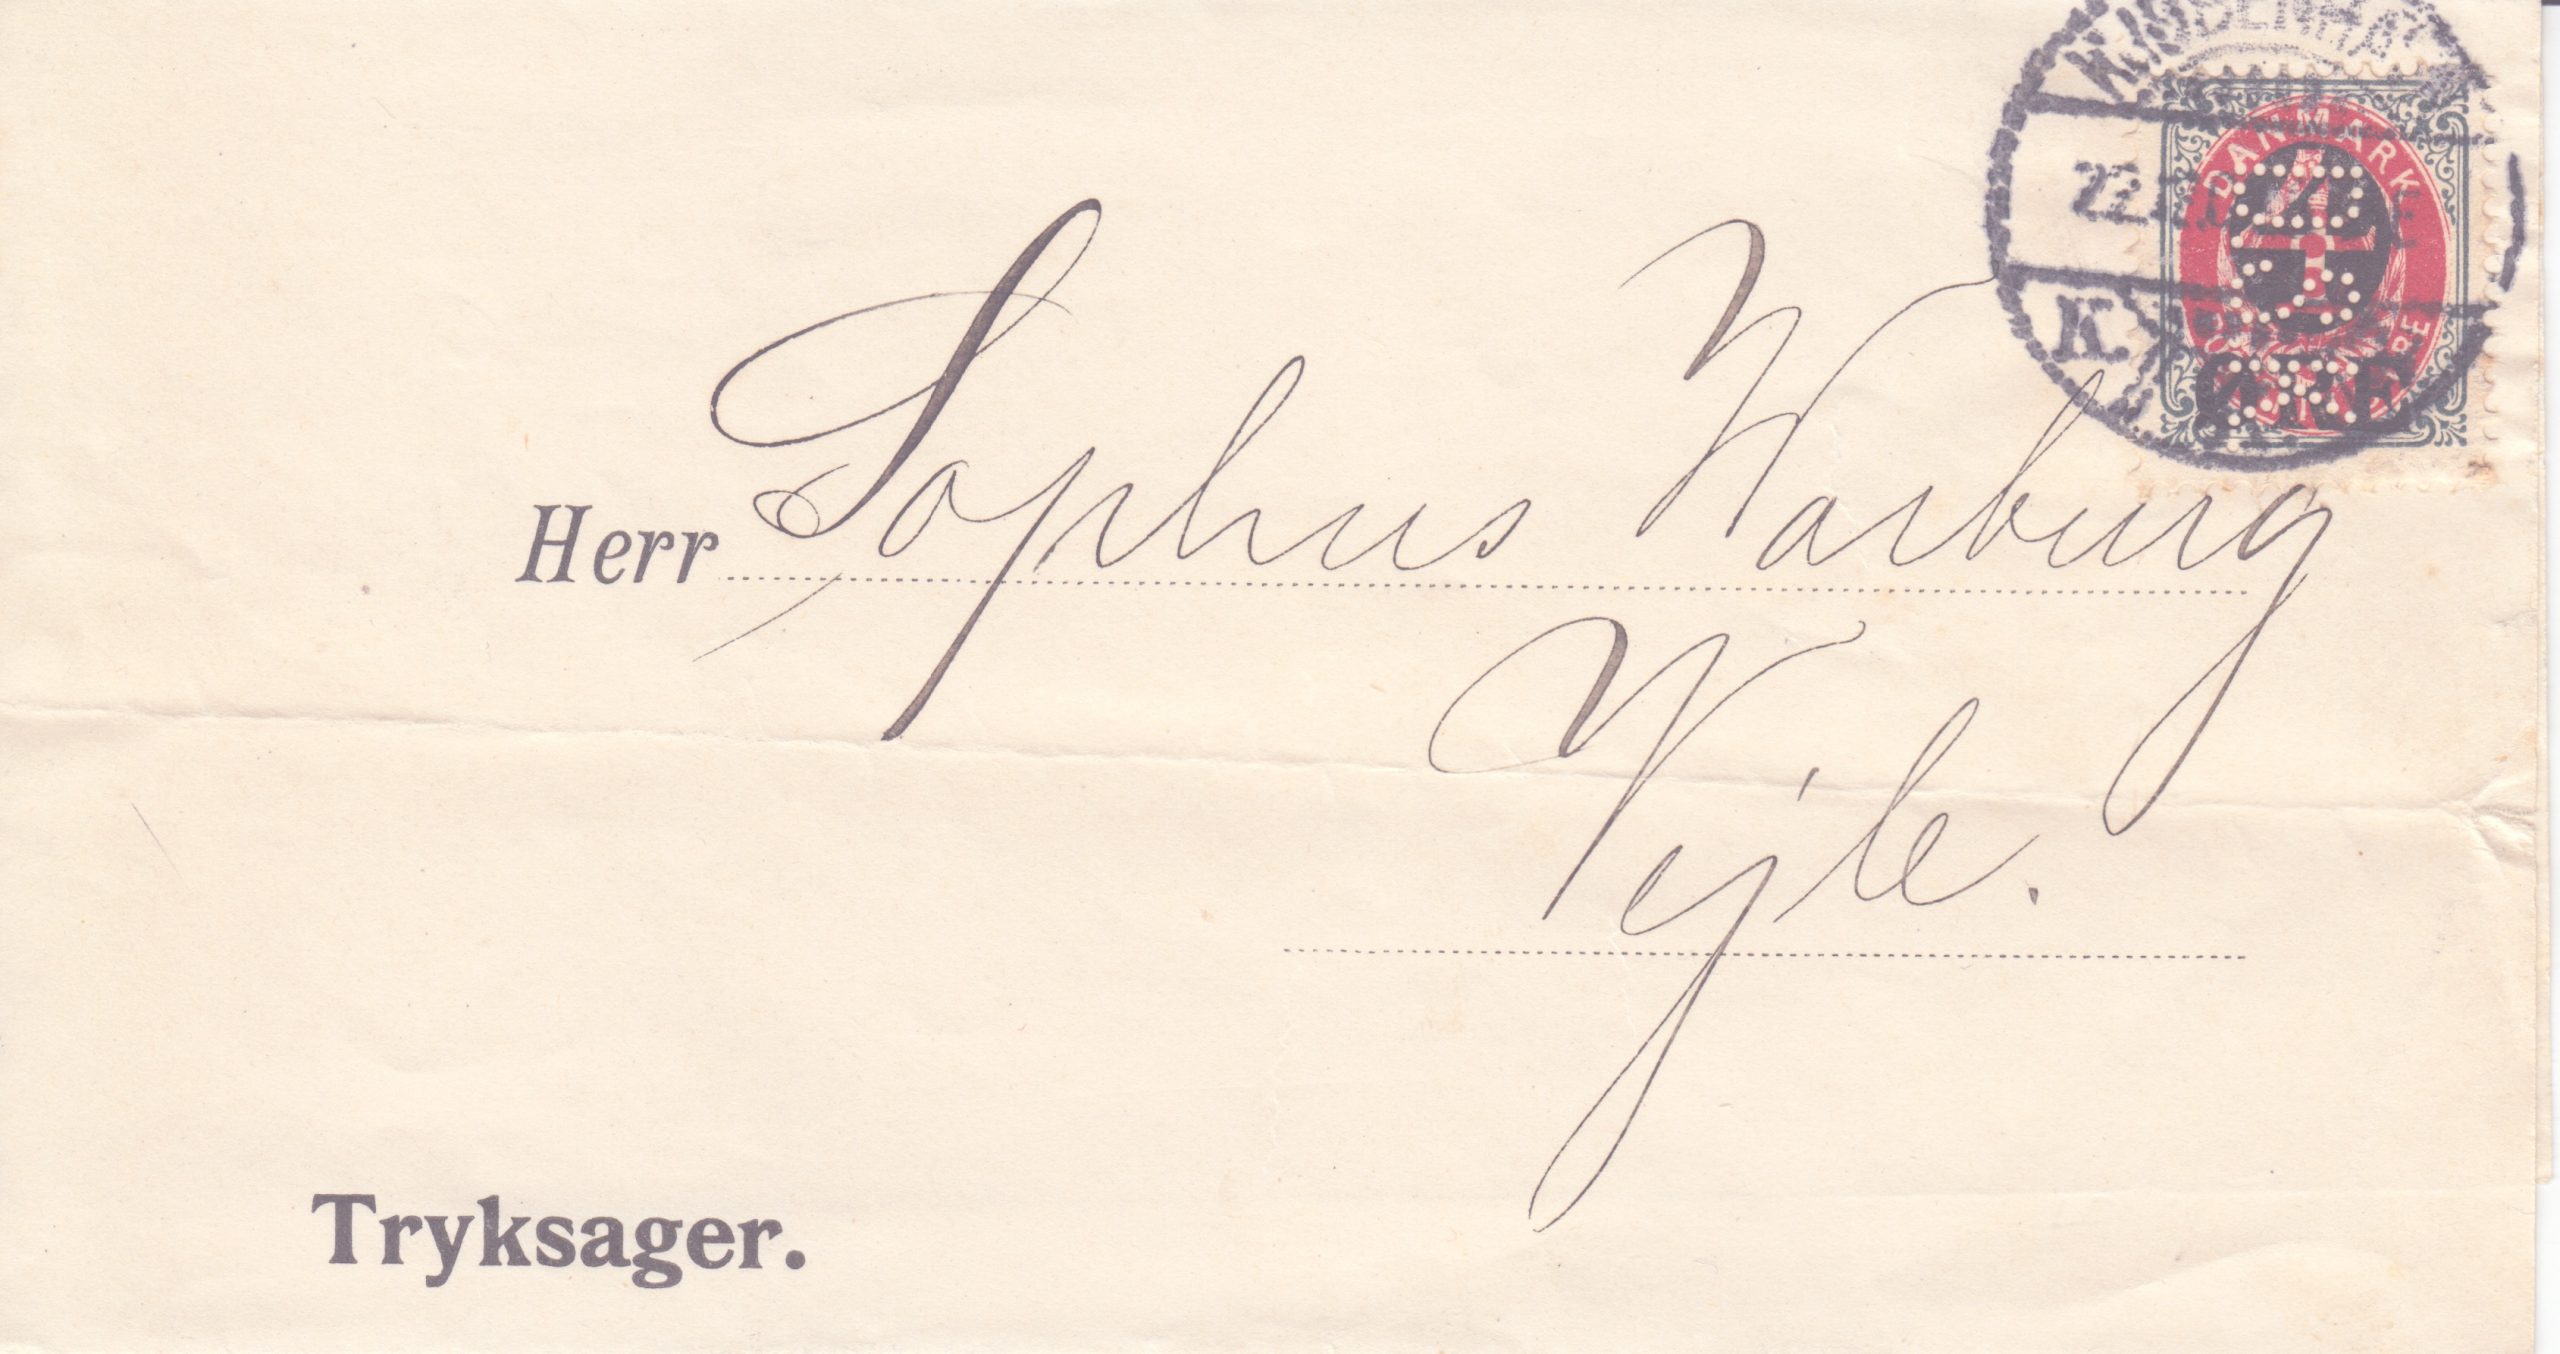 KJØBENHA
DANMARK
22
K.
ØRE
Herr Sophus Warburg
Vejle.
Tryksager.